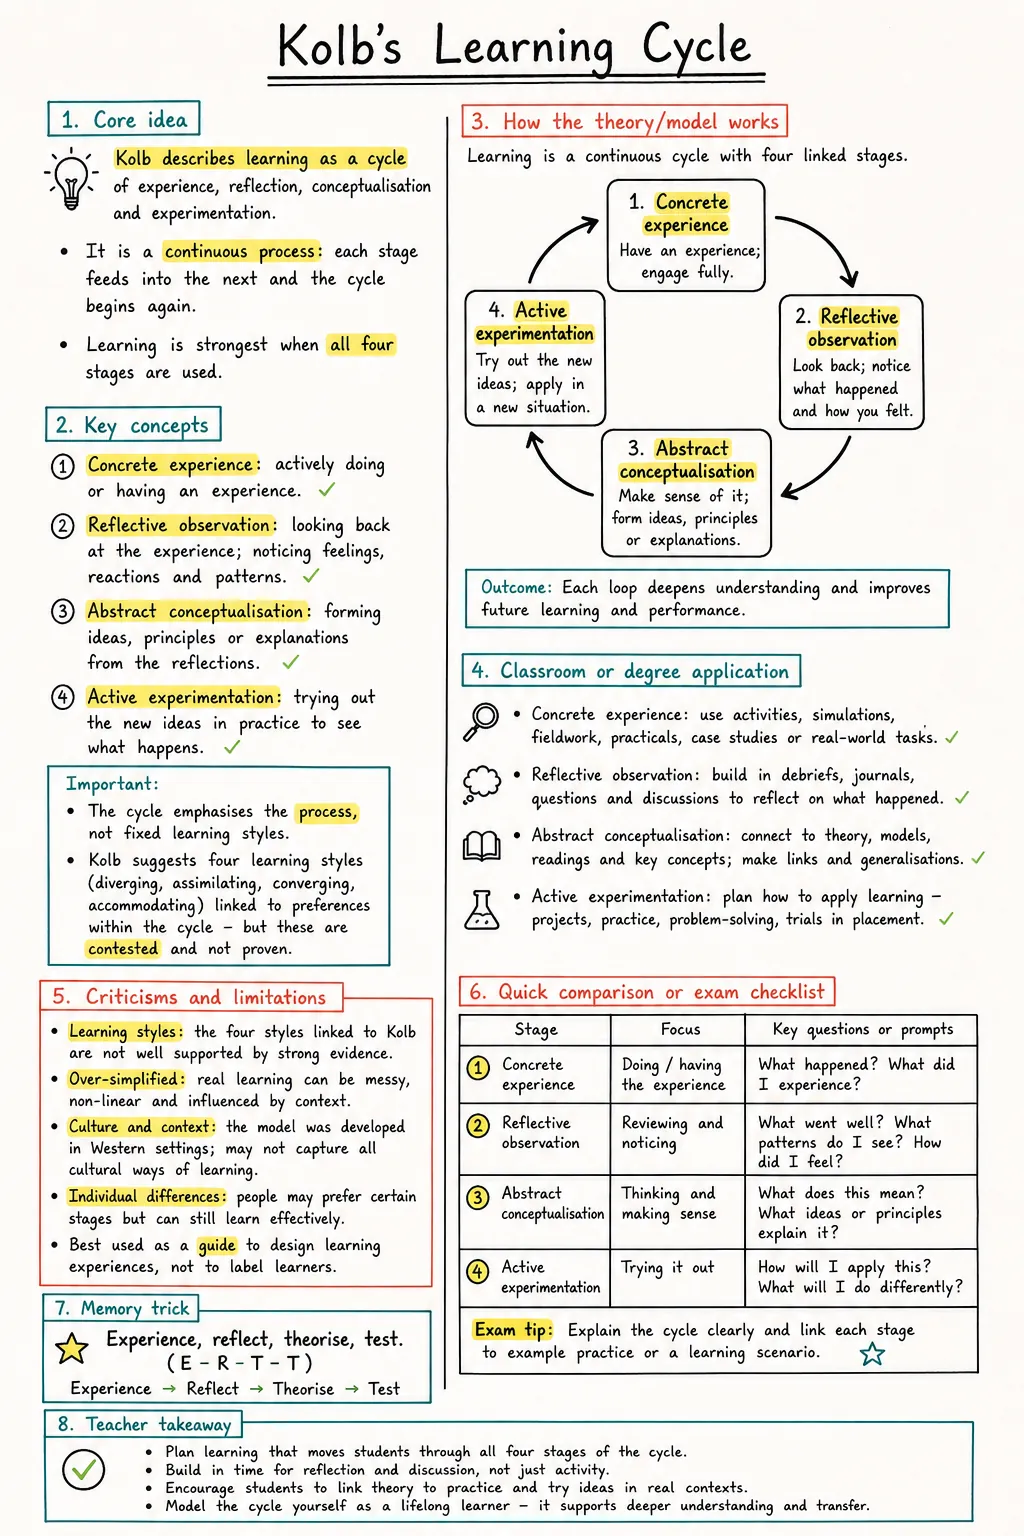 Kolb's Learning Cycle
1. Core idea
Kolb describes learning as a cycle
of experience, reflection, conceptualisation
and experimentation.
• It is a continuous process: each stage
feeds into the next and the cycle
begins again.
• Learning is strongest when all four
stages are used.
2. Key concepts
1 Concrete experience: actively doing
or having an experience. ✓
2 Reflective observation: looking back
at the experience; noticing feelings,
reactions and patterns. ✓
3 Abstract conceptualisation: forming
ideas, principles or explanations
from the reflections. ✓
4 Active experimentation: trying out
the new ideas in practice to see
what happens. ✓
Important:
• The cycle emphasises the process,
not fixed learning styles.
• Kolb suggests four learning styles
(diverging, assimilating, converging,
accommodating) linked to preferences
within the cycle – but these are
contested and not proven.
3. How the theory/model works
Learning is a continuous cycle with four linked stages.
1. Concrete
experience
Have an experience;
engage fully.
2. Reflective
observation
Look back; notice
what happened
and how you felt.
3. Abstract
conceptualisation
Make sense of it;
form ideas, principles
or explanations.
4. Active
experimentation
Try out the new
ideas; apply in
a new situation.
Outcome: Each loop deepens understanding and improves
future learning and performance.
4. Classroom or degree application
• Concrete experience: use activities, simulations,
fieldwork, practicals, case studies or real-world tasks. ✓
• Reflective observation: build in debriefs, journals,
questions and discussions to reflect on what happened. ✓
• Abstract conceptualisation: connect to theory, models,
readings and key concepts; make links and generalisations. ✓
• Active experimentation: plan how to apply learning –
projects, practice, problem-solving, trials in placement. ✓
5. Criticisms and limitations
• Learning styles: the four styles linked to Kolb
are not well supported by strong evidence.
• Over-simplified: real learning can be messy,
non-linear and influenced by context.
• Culture and context: the model was developed
in Western settings; may not capture all
cultural ways of learning.
• Individual differences: people may prefer certain
stages but can still learn effectively.
• Best used as a guide to design learning
experiences, not to label learners.
6. Quick comparison or exam checklist
Stage Focus Key questions or prompts
1 Concrete
experience
Doing / having
the experience
What happened? What did
I experience?
2 Reflective
observation
Reviewing and
noticing
What went well? What
patterns do I see? How
did I feel?
3 Abstract
conceptualisation
Thinking and
making sense
What does this mean?
What ideas or principles
explain it?
4 Active
experimentation
Trying it out
How will I apply this?
What will I do differently?
Exam tip: Explain the cycle clearly and link each stage
to example practice or a learning scenario.
7. Memory trick
Experience, reflect, theorise, test.
(E – R – T – T)
Experience → Reflect → Theorise → Test
8. Teacher takeaway
• Plan learning that moves students through all four stages of the cycle.
• Build in time for reflection and discussion, not just activity.
• Encourage students to link theory to practice and try ideas in real contexts.
• Model the cycle yourself as a lifelong learner – it supports deeper understanding and transfer.